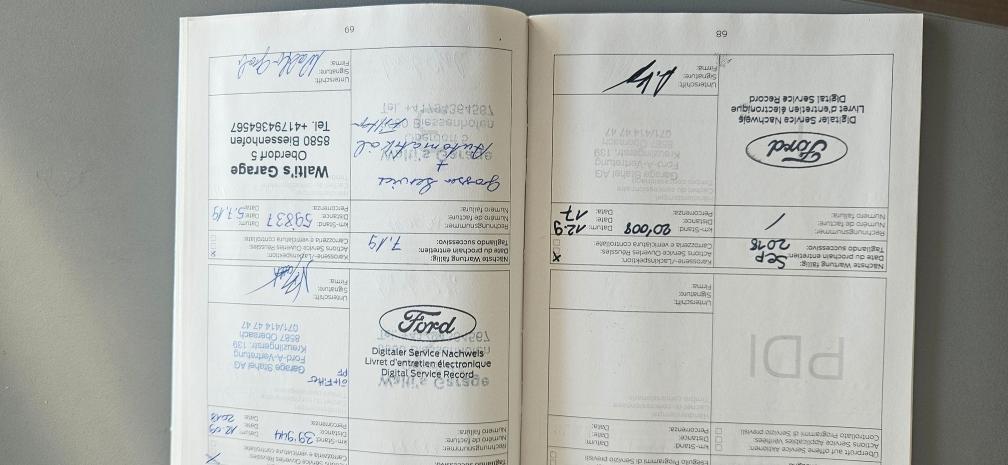 Eseguito Programmi di Servizio previsti
Überprüft auf offene Aktionen:
Actions Applicables Vérifiées:
Controllato Programmi di Servizio previsti
km-Stand:
Distance:
Percorrenza:
Datum:
Date:
Data:
PDI
Unterschrift:
Signature:
Firma:
Nächste Wartung fällig:
Date du prochain entretien:
Tagliando successivo:
Sep 2018
Karosserie-/Lackinspektion:
Actions Service Ouvertes Réussies:
Carrozzeria e verniciatura controllate:
x
Rechnungsnummer:
Numéro de facture:
Numero fattura:
/
km-Stand:
Distance:
Percorrenza:
20'008
Datum:
Date:
Data:
12.9
17
Ford
Digitaler Service Nachweis
Livret d'entretien électronique
Digital Service Record
Unterschrift:
Signature:
Firma:
68
Rechnungsnummer:
Numéro de facture:
Numero fattura:
km-Stand:
Distance:
Percorrenza:
39'944
Datum:
Date:
Data:
12.09
2018
Ford
Digitaler Service Nachweis
Livret d'entretien électronique
Digital Service Record
Garage Stahel AG
Ford-A-Vertretung
Kreuzlingerstr. 139
8587 Oberaach
071/414 47 47
Unterschrift:
Signature:
Firma:
Nächste Wartung fällig:
Date du prochain entretien:
Tagliando successivo:
7.19
Karosserie-/Lackinspektion:
Actions Service Ouvertes Réussies:
Carrozzeria e verniciatura controllate:
x
Rechnungsnummer:
Numéro de facture:
Numero fattura:
km-Stand:
Distance:
Percorrenza:
59837
Datum:
Date:
Data:
5.7.19
Grosser Service
+
Automatiköl
Filter
Walti's Garage
Oberdorf 5
8580 Biessenhofen
Tel. +41794364567
Unterschrift:
Signature:
Firma:
69